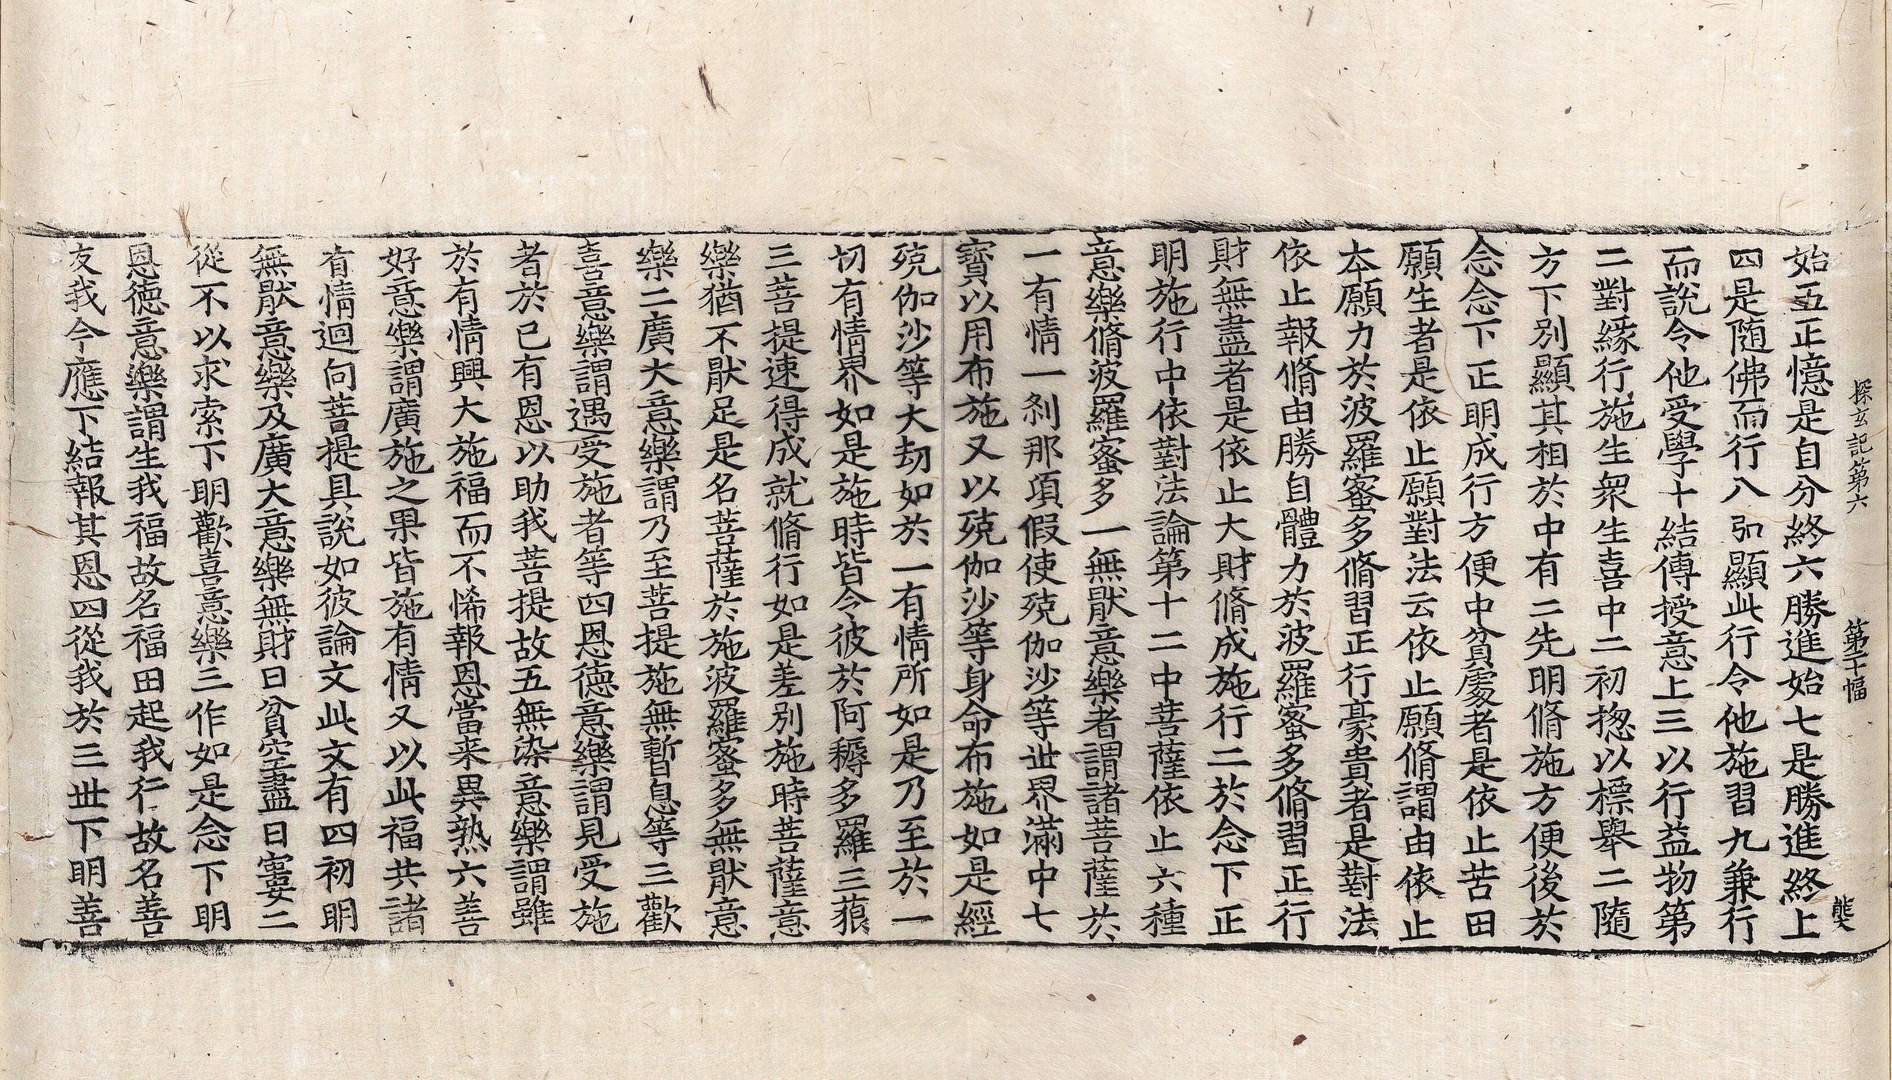 探玄記第六　第二十幅　龔
始五正憶是自分終六勝進始七是勝進終上
四是隨佛而行八引顯此行令他施習九兼行
而說令他受學十結傳授意上三以行益物第
二對緣行施生衆生喜中二初揔以標舉二隨
方下別顯其相於中有二先明脩施方便後於
念念下正明成行方便中貧處者是依止苦田
願生者是依止願對法云依止願脩謂由依止
本願力於波羅蜜多脩習正行豪貴者是對法
依止報脩由勝自體力於波羅蜜多脩習正行
財無盡者是依止大財脩成施行二於念下正
明施行中依對法論第十二中菩薩依止六種
意樂脩波羅蜜多一無猒意樂者謂諸菩薩於
一有情一刹那項假使殑伽沙等世界滿中七
寶以用布施又以殑伽沙等身命布施如是經
殑伽沙等大劫如於一有情所如是乃至於一
切有情界如是施時皆令彼於阿耨多羅三藐
三菩提速得成就脩行如是差別施時菩薩意
樂猶不猒足是名菩薩於施波羅蜜多無猒意
樂二廣大意樂謂乃至菩提施無暫息等三歡
喜意樂謂遇受施者等四恩德意樂謂見受施
者於己有恩以助我菩提故五無染意樂謂雖
於有情興大施福而不悕報恩當来異熟六善
好意樂謂廣施之果皆施有情又以此福共諸
有情迴向菩提具說如彼論文此文有四初明
無猒意樂及廣大意樂無財曰貧空盡曰窶二
從不以求索下明歡喜意樂三作如是念下明
恩德意樂謂生我福故名福田起我行故名善
友我今應下結報其恩四從我於三世下明善